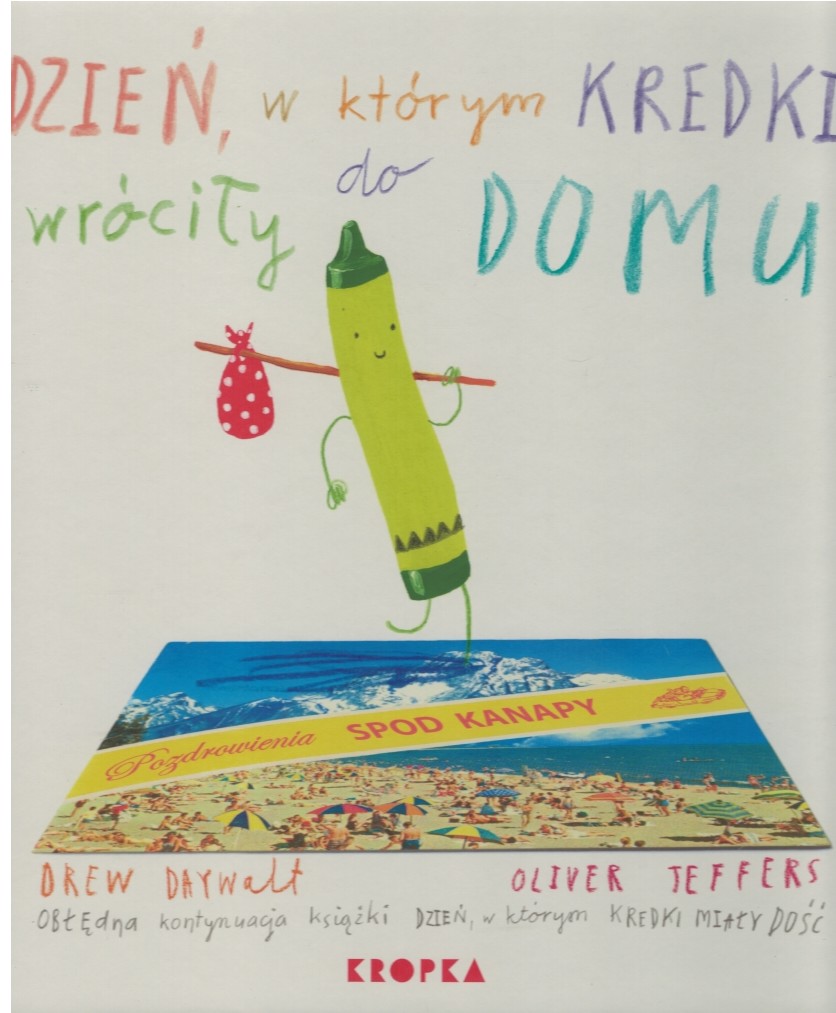 DZIEŃ, w którym KREDKI
wróciły do DOMU
Pozdrowienia SPOD KANAPY
DREW DAYWalt OLIVER JEFFERS
OBŁĘDNA kontynuacja książki DZIEŃ, w którym KREDKI MIAŁY DOŚĆ
KROPKA